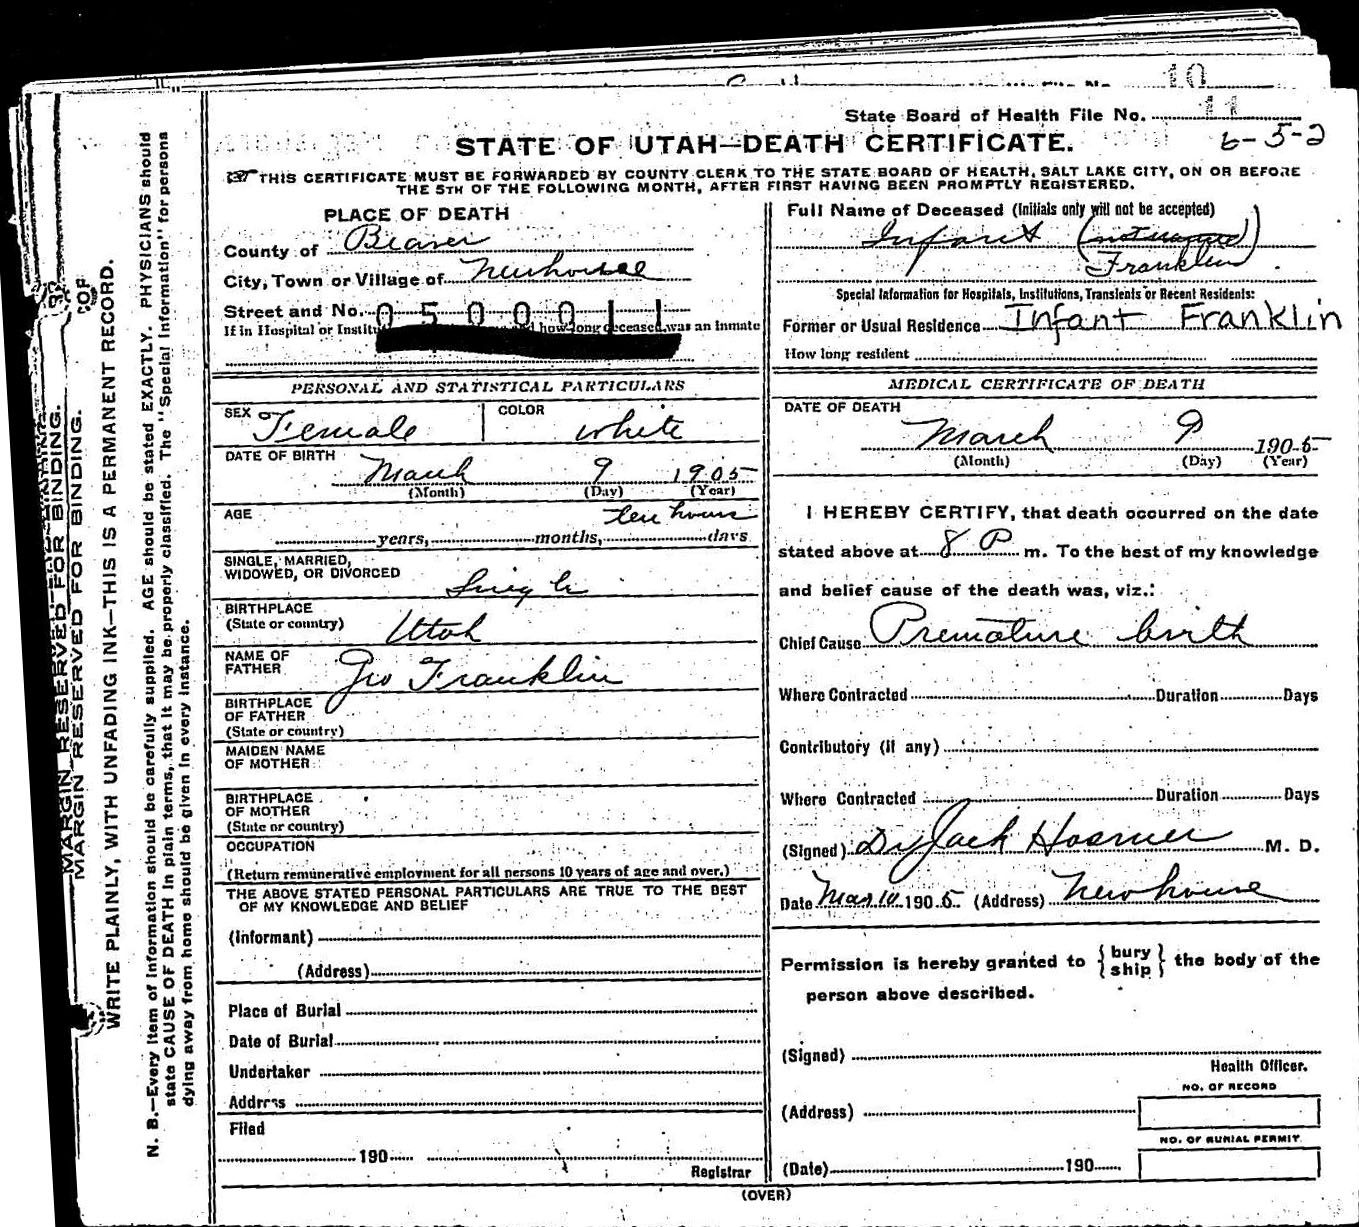 10
State Board of Health File No. 11
6-5-2
STATE OF UTAH—DEATH CERTIFICATE.
THIS CERTIFICATE MUST BE FORWARDED BY COUNTY CLERK TO THE STATE BOARD OF HEALTH, SALT LAKE CITY, ON OR BEFORE
THE 5TH OF THE FOLLOWING MONTH, AFTER FIRST HAVING BEEN PROMPTLY REGISTERED.
PLACE OF DEATH
County of Beaver
City, Town or Village of Newhouse
Street and No. 0500011
If in Hospital or how long deceased was an inmate
Full Name of Deceased (Initials only will not be accepted)
Infant (not named)
Franklin
Special Information for Hospitals, Institutions, Transients or Recent Residents:
Former or Usual Residence Infant Franklin
How long resident
PERSONAL AND STATISTICAL PARTICULARS
SEX Female COLOR white
DATE OF BIRTH March 9 1905
(Month) (Day) (Year)
AGE ten hours
years, months, days
SINGLE, MARRIED,
WIDOWED, OR DIVORCED Single
BIRTHPLACE
(State or country) Utah
NAME OF
FATHER Geo Franklin
BIRTHPLACE
OF FATHER
(State or country)
MAIDEN NAME
OF MOTHER
BIRTHPLACE
OF MOTHER
(State or country)
OCCUPATION
(Return remunerative employment for all persons 10 years of age and over.)
THE ABOVE STATED PERSONAL PARTICULARS ARE TRUE TO THE BEST
OF MY KNOWLEDGE AND BELIEF
(Informant)
(Address)
Place of Burial
Date of Burial
Undertaker
Address
Filed
190
Registrar
MEDICAL CERTIFICATE OF DEATH
DATE OF DEATH
March 9 1905
(Month) (Day) (Year)
I HEREBY CERTIFY, that death occurred on the date
stated above at 8 P m. To the best of my knowledge
and belief cause of the death was, viz.:
Chief Cause Premature birth
Where Contracted Duration Days
Contributory (if any)
Where Contracted Duration Days
(Signed) Dr Jack Hosmer M. D.
Date Mar 10 1905 (Address) Newhouse
Permission is hereby granted to {bury
ship} the body of the
person above described.
(Signed)
Health Officer.
NO. OF RECORD
(Address)
NO. OF BURIAL PERMIT
(Date) 190
(OVER)
MARGIN RESERVED FOR BINDING.
MARGIN RESERVED FOR BINDING.
WRITE PLAINLY, WITH UNFADING INK—THIS IS A PERMANENT RECORD.
N. B.—Every item of information should be carefully supplied. AGE should be stated EXACTLY. PHYSICIANS should
state CAUSE OF DEATH in plain terms, that it may be properly classified. The "Special Information" for persons
dying away from home should be given in every instance.